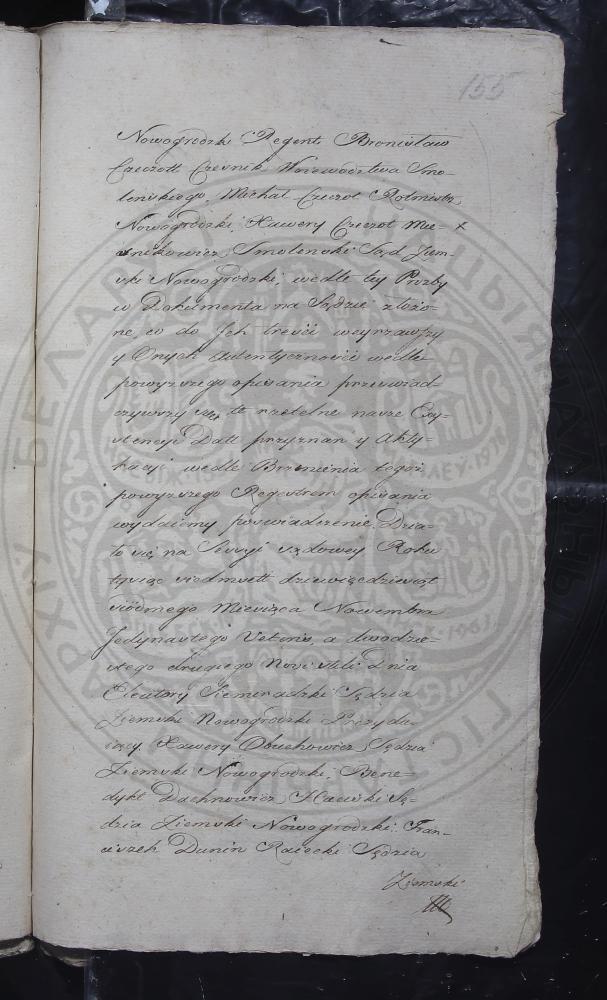 155
Nowogrodzki Regent Bronisław
Czeczott Czesnik Woiewodztwa Smo-
lenskiego, Michał Czeczot Rotmistrz
Nowogrodzki, Xawery Czeczot Mie-
cznikowicz Smolenski Sąd Ziem-
ski Nowogrodzki, wedle tey Prozby
w Dokumenta na Sądzie złożo-
ne, co do Jch treści weyrzawszy
y Onych Autentyczności wedle
powyższego opisania przeswiad-
czywszy się te rzetelne nasze Exy-
stencyi Datt przyznan y Akty-
kacyi wedle Brzmienia tegoż
powyższego Regestrem opisania
wydaiemy poswiadczenie. Dzia-
ło się na Sessyi sądowey Roku
tysiąc siedmsett dziewięcdziesiąt
siódmego Miesiąca Nowembra
Jedynastego Veteris, a dwudzie-
stego drugiego Novi stili Dnia
Eleutery Siemiradzki Sędzia
Ziemski Nowogrodzki Prezydu-
iący Xawery Obuchowicz Sędzia
Ziemski Nowogrodzki, Bene-
dykt Dachnowicz Haciski Sę-
dzia Ziemski Nowogrodzki. Fran-
ciszek Dunin Raiecki Sędzia
Ziemski